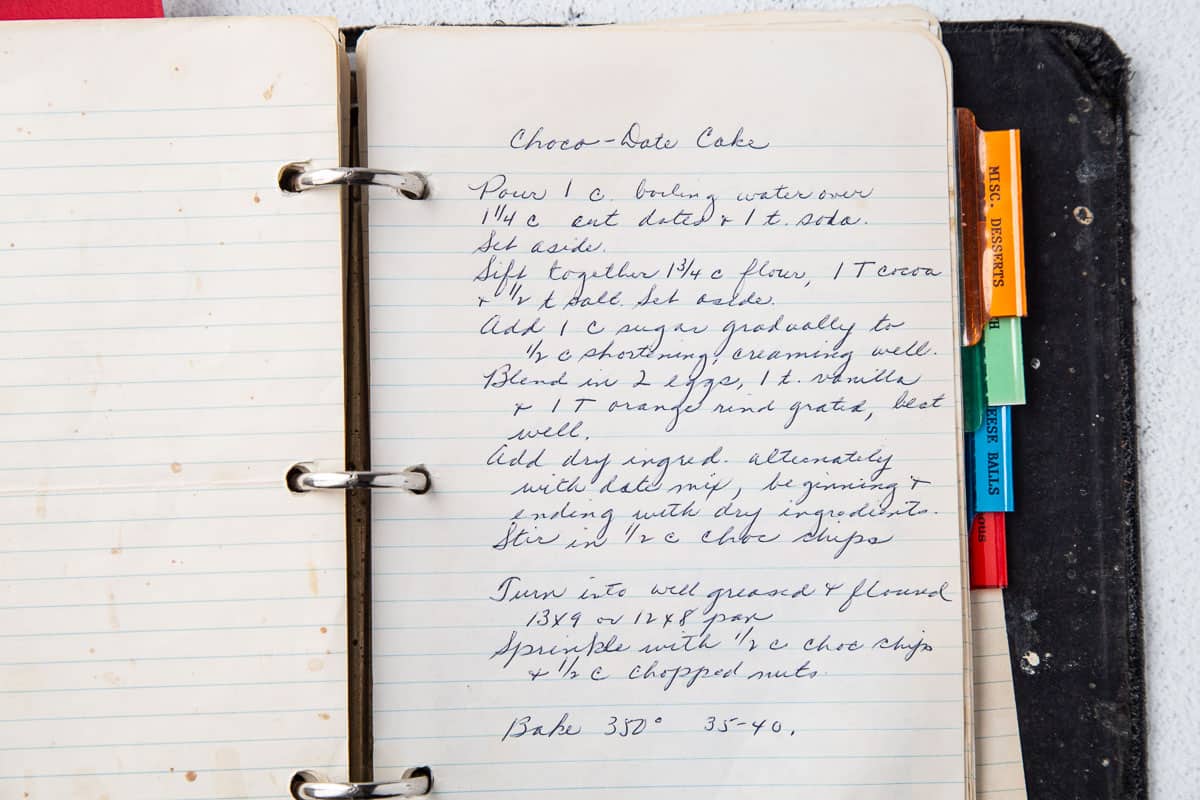 Choco-Date Cake
Pour 1 c. boiling water over
1 1/4 c cut dates & 1 t. soda.
Set aside.
Sift together 1 3/4 c flour, 1 T cocoa
& 1/2 t salt. Set aside.
Add 1 c sugar gradually to
1/2 c shortening, creaming well.
Blend in 2 eggs, 1 t. vanilla
& 1 T orange rind grated, beat
well.
Add dry ingred. alternately
with date mix, beginning &
ending with dry ingredients.
Stir in 1/2 c choc chips
Turn into well greased & floured
13x9 or 12x8 pan
Sprinkle with 1/2 c choc chips
& 1/2 c chopped nuts.
Bake 350° 35-40.
MISC. DESSERTS
H
EESE BALLS
ous